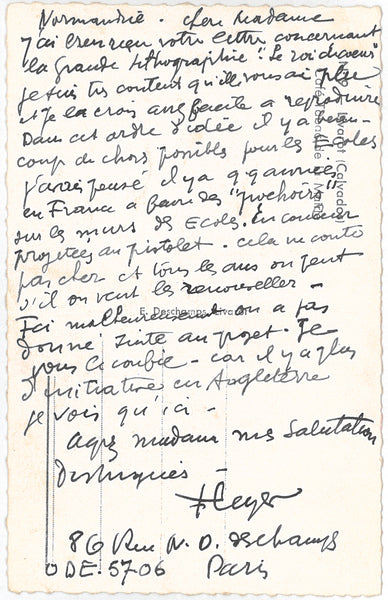 Normandie. Chère Madame
J'ai bien reçu votre lettre concernant
la Grande Lithographie "Le roi de cœur"
je suis très content qu'elle vous ai plue
et je la crois assez facile a reproduire
Dans cet ordre d'idée il y a beau-
coup de choses possibles pour les Ecoles
j'avais pensé il y a q.q. années
en France a faire des "pochoirs"
sur les murs des Ecoles. En couleur
projetées au pistolet. cela ne coute
pas cher et tous les ans on peut
s'il on veut les renouveller -
Ici malheureusement on a pas
donné suite au projet. Je
vous le confie - car il y a plus
d'initiative en Angleterre
je vois qu'ici -
Agrez madame mes Salutation
Distinguées -
F Leger
86 Rue N. D. des champs
ODE. 57-06 Paris
Livarot (Calvados)
E. Deschamps, Livarot